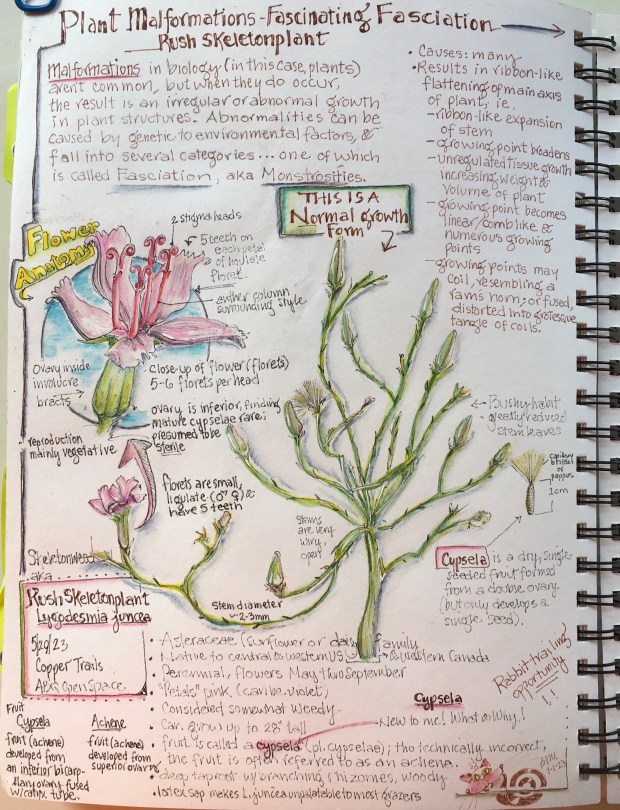 Plant Malformations - Fascinating Fasciation
Rush Skeletonplant
Malformations in biology (in this case, plants)
aren't common, but when they do occur,
the result is an irregular or abnormal growth
in plant structures. Abnormalities can be
caused by genetic to environmental factors, &
fall into several categories... one of which
is called Fasciation, aka Monstrosities.
• Causes: many
• Results in ribbon-like
flattening of main axis
of plant, i.e.,
- ribbon-like expansion
of stem
- growing point broadens
- unregulated tissue growth
increasing weight &
volume of plant
- growing point becomes
linear/comblike &
numerous growing
points
- growing points may
coil, resembling a
rams horn; or fused,
distorted into grotesque
tangle of coils.
THIS IS A
Normal growth
Form
Flower
Anatomy
2 stigma heads
5 teeth on
each petal
of ligulate
floret
anther column
surrounding style
Ovary inside
involucre
bracts
Close-up of flower (florets)
5-6 florets per head
ovary is inferior, finding
mature cypselae rare;
presumed to be
sterile
reproduction
mainly vegetative
florets are small,
ligulate (♂ ♀) &
have 5 teeth
Bushy habit
greatly reduced
stem leaves
capillary
bristles of
pappus
1cm
Stems
are very
wiry,
open
Cypsela is a dry, single-
seeded fruit formed
from a double ovary
(but only develops a
single seed).
Skeletonweed
aka
Stem diameter
~2-3mm
Rush Skeletonplant
Lygodesmia juncea
5/29/23
Copper Trails
Open Space
• Asteraceae (sunflower or daisy family
• Native to central & western US & western Canada
• Perennial, flowers May thru September
• "Petals" pink (can be violet)
• Considered somewhat weedy
• Can grow up to 28" tall
• fruit is called a cypsela (pl. cypselae); tho technically incorrect,
the fruit is often referred to as an achene.
• deep taproot w/ branching rhizomes, woody
• latex sap makes L. juncea unpalatable to most grazers
Cypsela
New to me! What & Why!
Rabbit trailing
opportunity
!!
Fruit
Cypsela
fruit (achene)
developed from
an inferior bicarp-
illary ovary fused
w/ calyx tube.
Achene
fruit (achene)
developed from
superior ovary